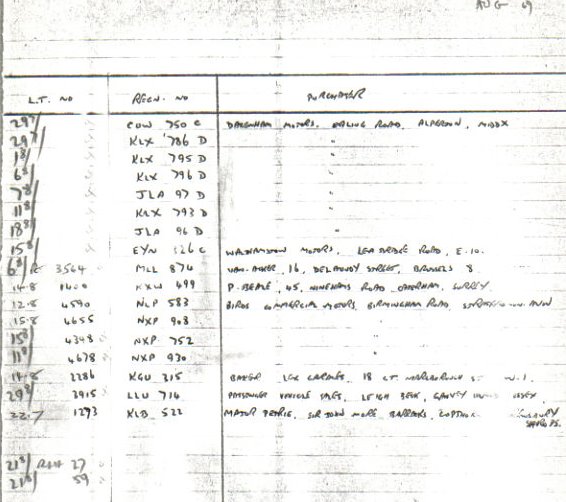 AUG 69
L.T. NO REGN. NO PURCHASER
29/7 CUW 750 C DAGENHAM MOTORS, EALING ROAD, ALPERTON, MIDDX
29/7 KLX 786 D "
1/8 KLX 795 D "
6/8 KLX 796 D "
7/8 JLA 97 D "
11/8 KLX 793 D "
18/8 JLA 96 D "
15/8 EYN 326 C WALTHAMSTOW MOTORS, LEA BRIDGE ROAD, E.10.
6/8 3564 MLL 874 16, STREET, BRUSSELS 8
14.8 1400 KXW 499 P. BEALE, 45, NINEHAMS ROAD, CATERHAM, SURREY.
12.8 4590 NLP 583 BIRDS COMMERCIAL MOTORS, BIRMINGHAM ROAD,
15.8 4655 NXP 908
15/8 4398 NXP 752 "
11/8 4678 NXP 930
14.8 2286 KGU 315 LEX GARAGES, 18 GT. MARLBOROUGH ST W.1.
29/8 3915 LLU 714 PASSENGER VEHICLE SALES, LEIGH BECK, CANVEY ESSEX
22.7 1273 KLB 522 MAJOR PETRIE, SIR JOHN MORE BARRACKS, COPTHORNE SHROPS.
21/8 27
21/8 59